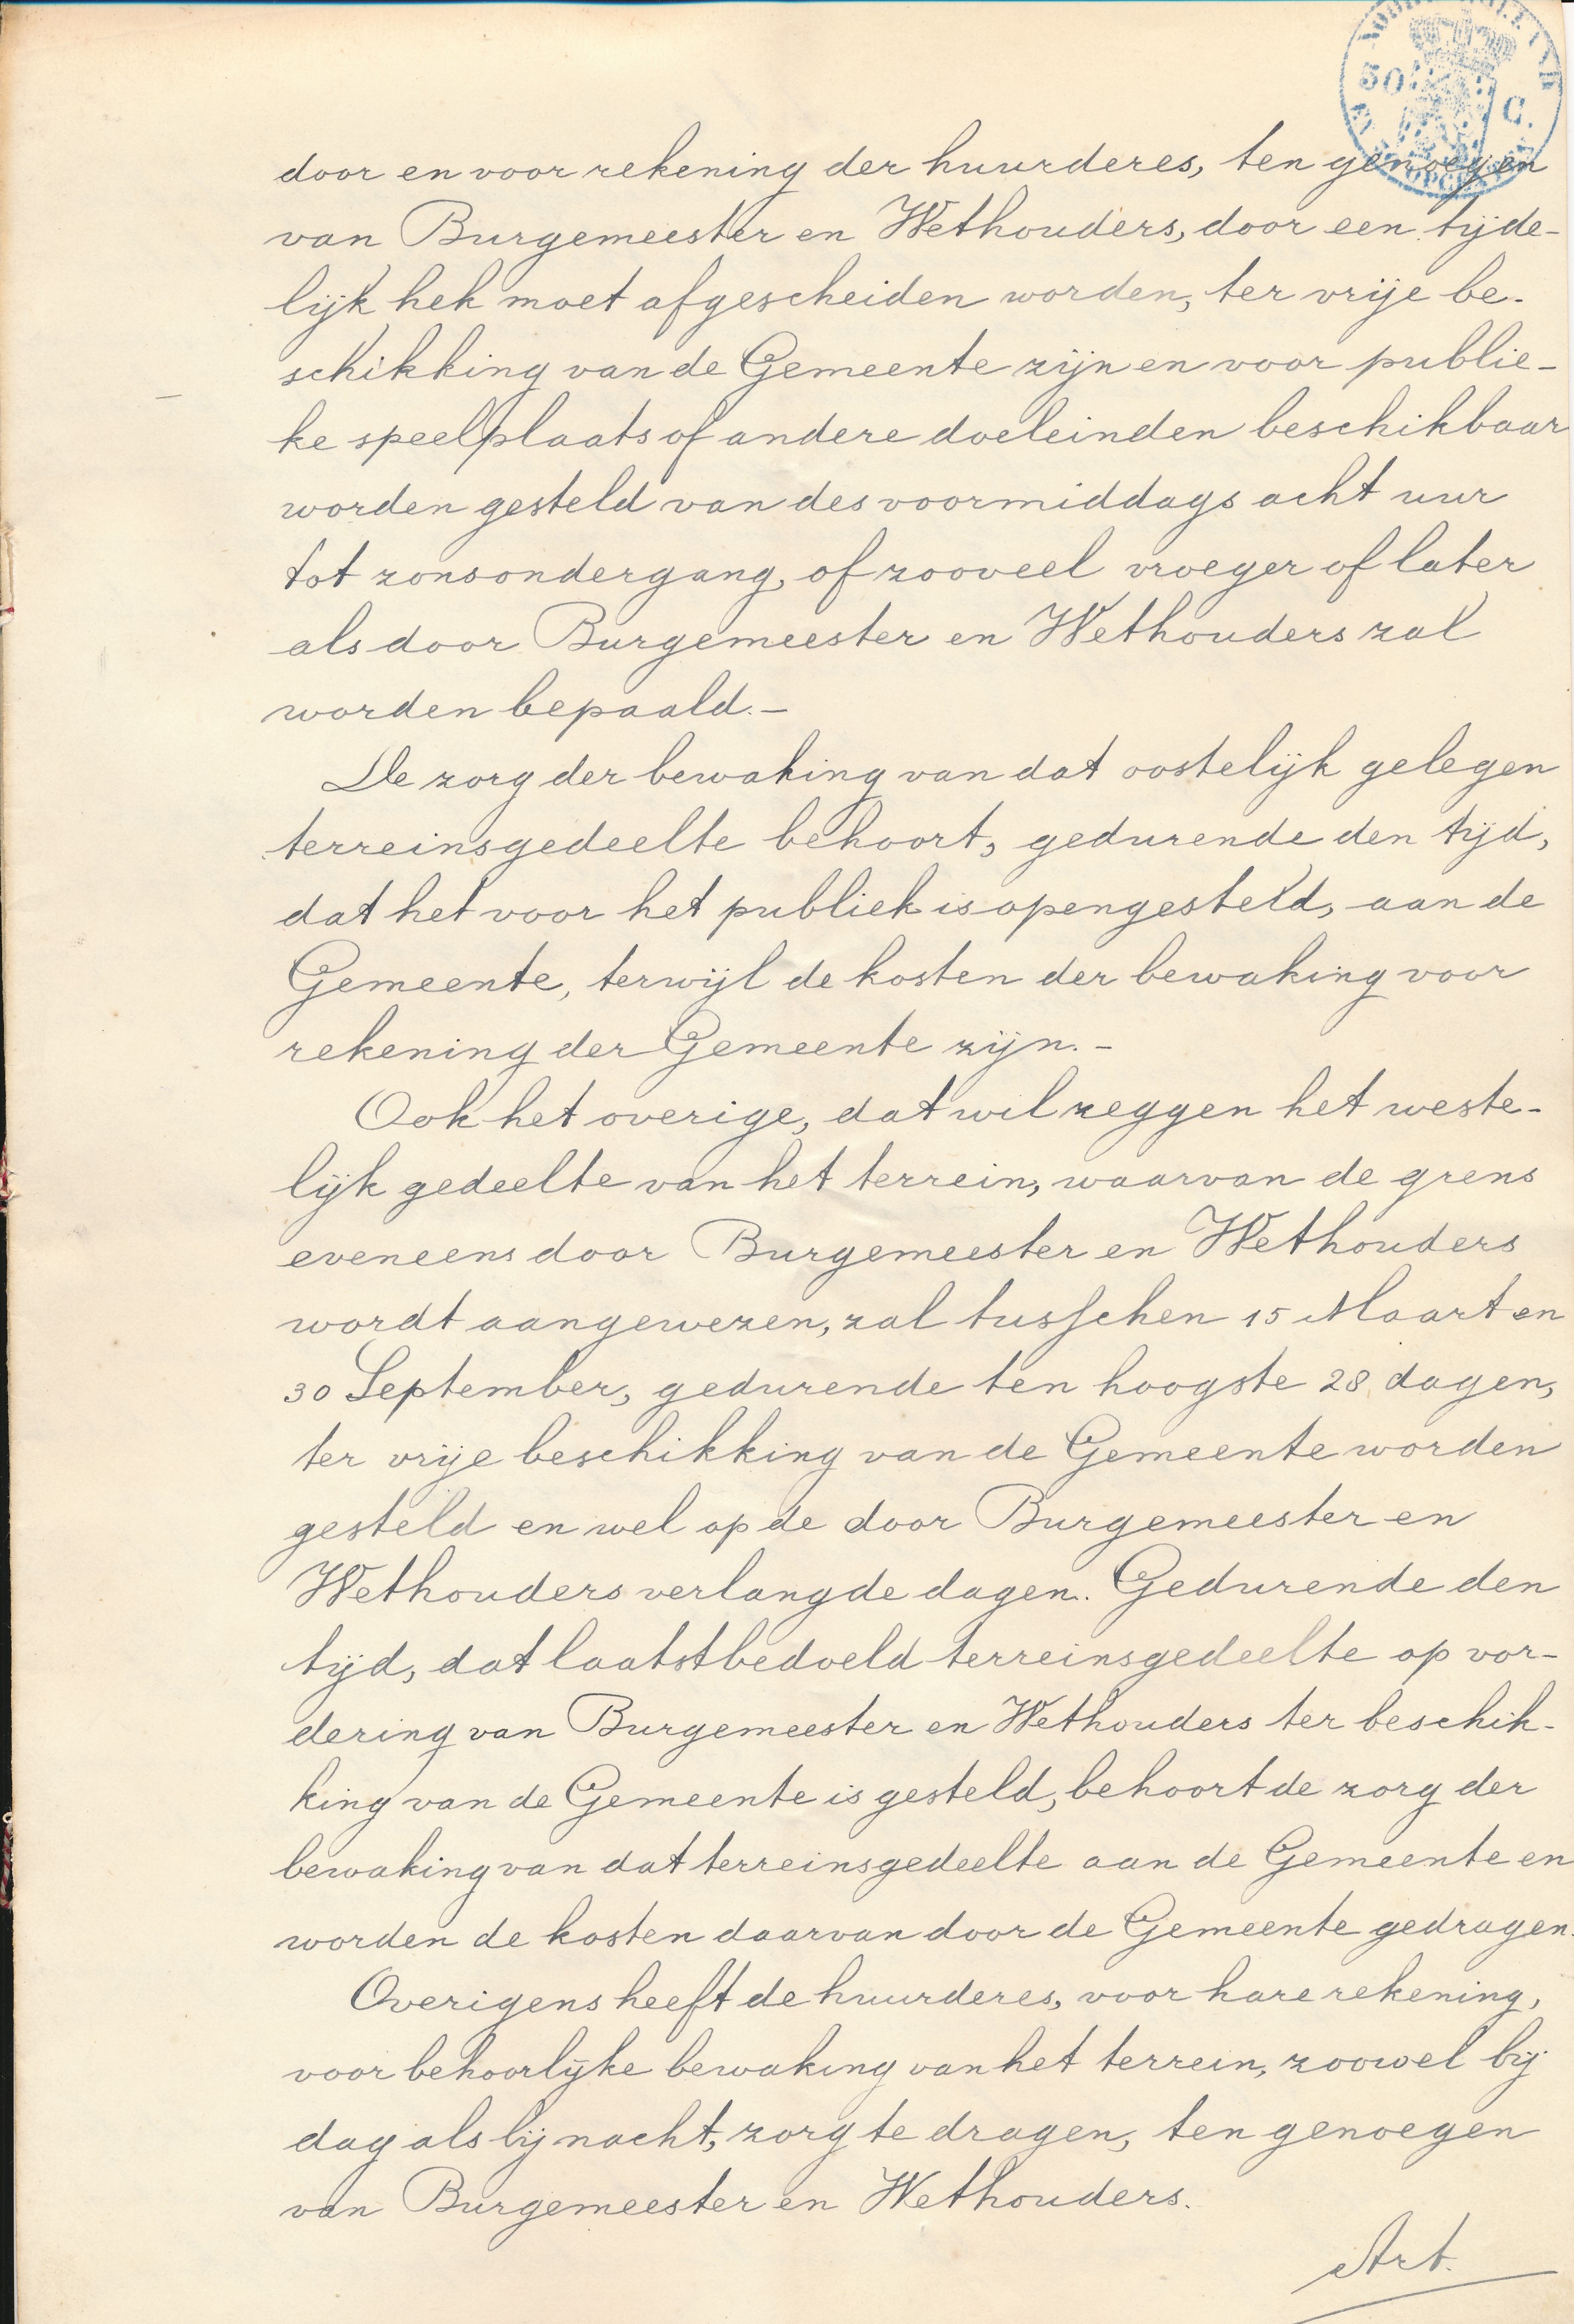 50
C.
door en voor rekening der huurderes, ten genoegen
van Burgemeester en Wethouders, door een tijde-
lijk hek moet afgescheiden worden, ter vrije be-
schikking van de Gemeente zijn en voor publie-
ke speelplaats of andere doeleinden beschikbaar
worden gesteld van des voormiddags acht uur
tot zonsondergang, of zooveel vroeger of later
als door Burgemeester en Wethouders zal
worden bepaald.-
De zorg der bewaking van dat oostelijk gelegen
terreinsgedeelte behoort, gedurende den tijd,
dat het voor het publiek is opengesteld, aan de
Gemeente, terwijl de kosten der bewaking voor
rekening der Gemeente zijn.-
Ook het overige, dat wil zeggen het weste-
lijk gedeelte van het terrein, waarvan de grens
eveneens door Burgemeester en Wethouders
wordt aangewezen, zal tusschen 15 Maart en
30 September, gedurende ten hoogste 28 dagen,
ter vrije beschikking van de Gemeente worden
gesteld en wel op de door Burgemeester en
Wethouders verlangde dagen. Gedurende den
tijd, dat laatstbedoeld terreinsgedeelte op vor-
dering van Burgemeester en Wethouders ter beschik-
king van de Gemeente is gesteld, behoort de zorg der
bewaking van dat terreinsgedeelte aan de Gemeente en
worden de kosten daarvan door de Gemeente gedragen.
Overigens heeft de huurderes, voor hare rekening,
voor behoorlijke bewaking van het terrein, zoowel bij
dag als bij nacht, zorg te dragen, ten genoegen
van Burgemeester en Wethouders.
Art.